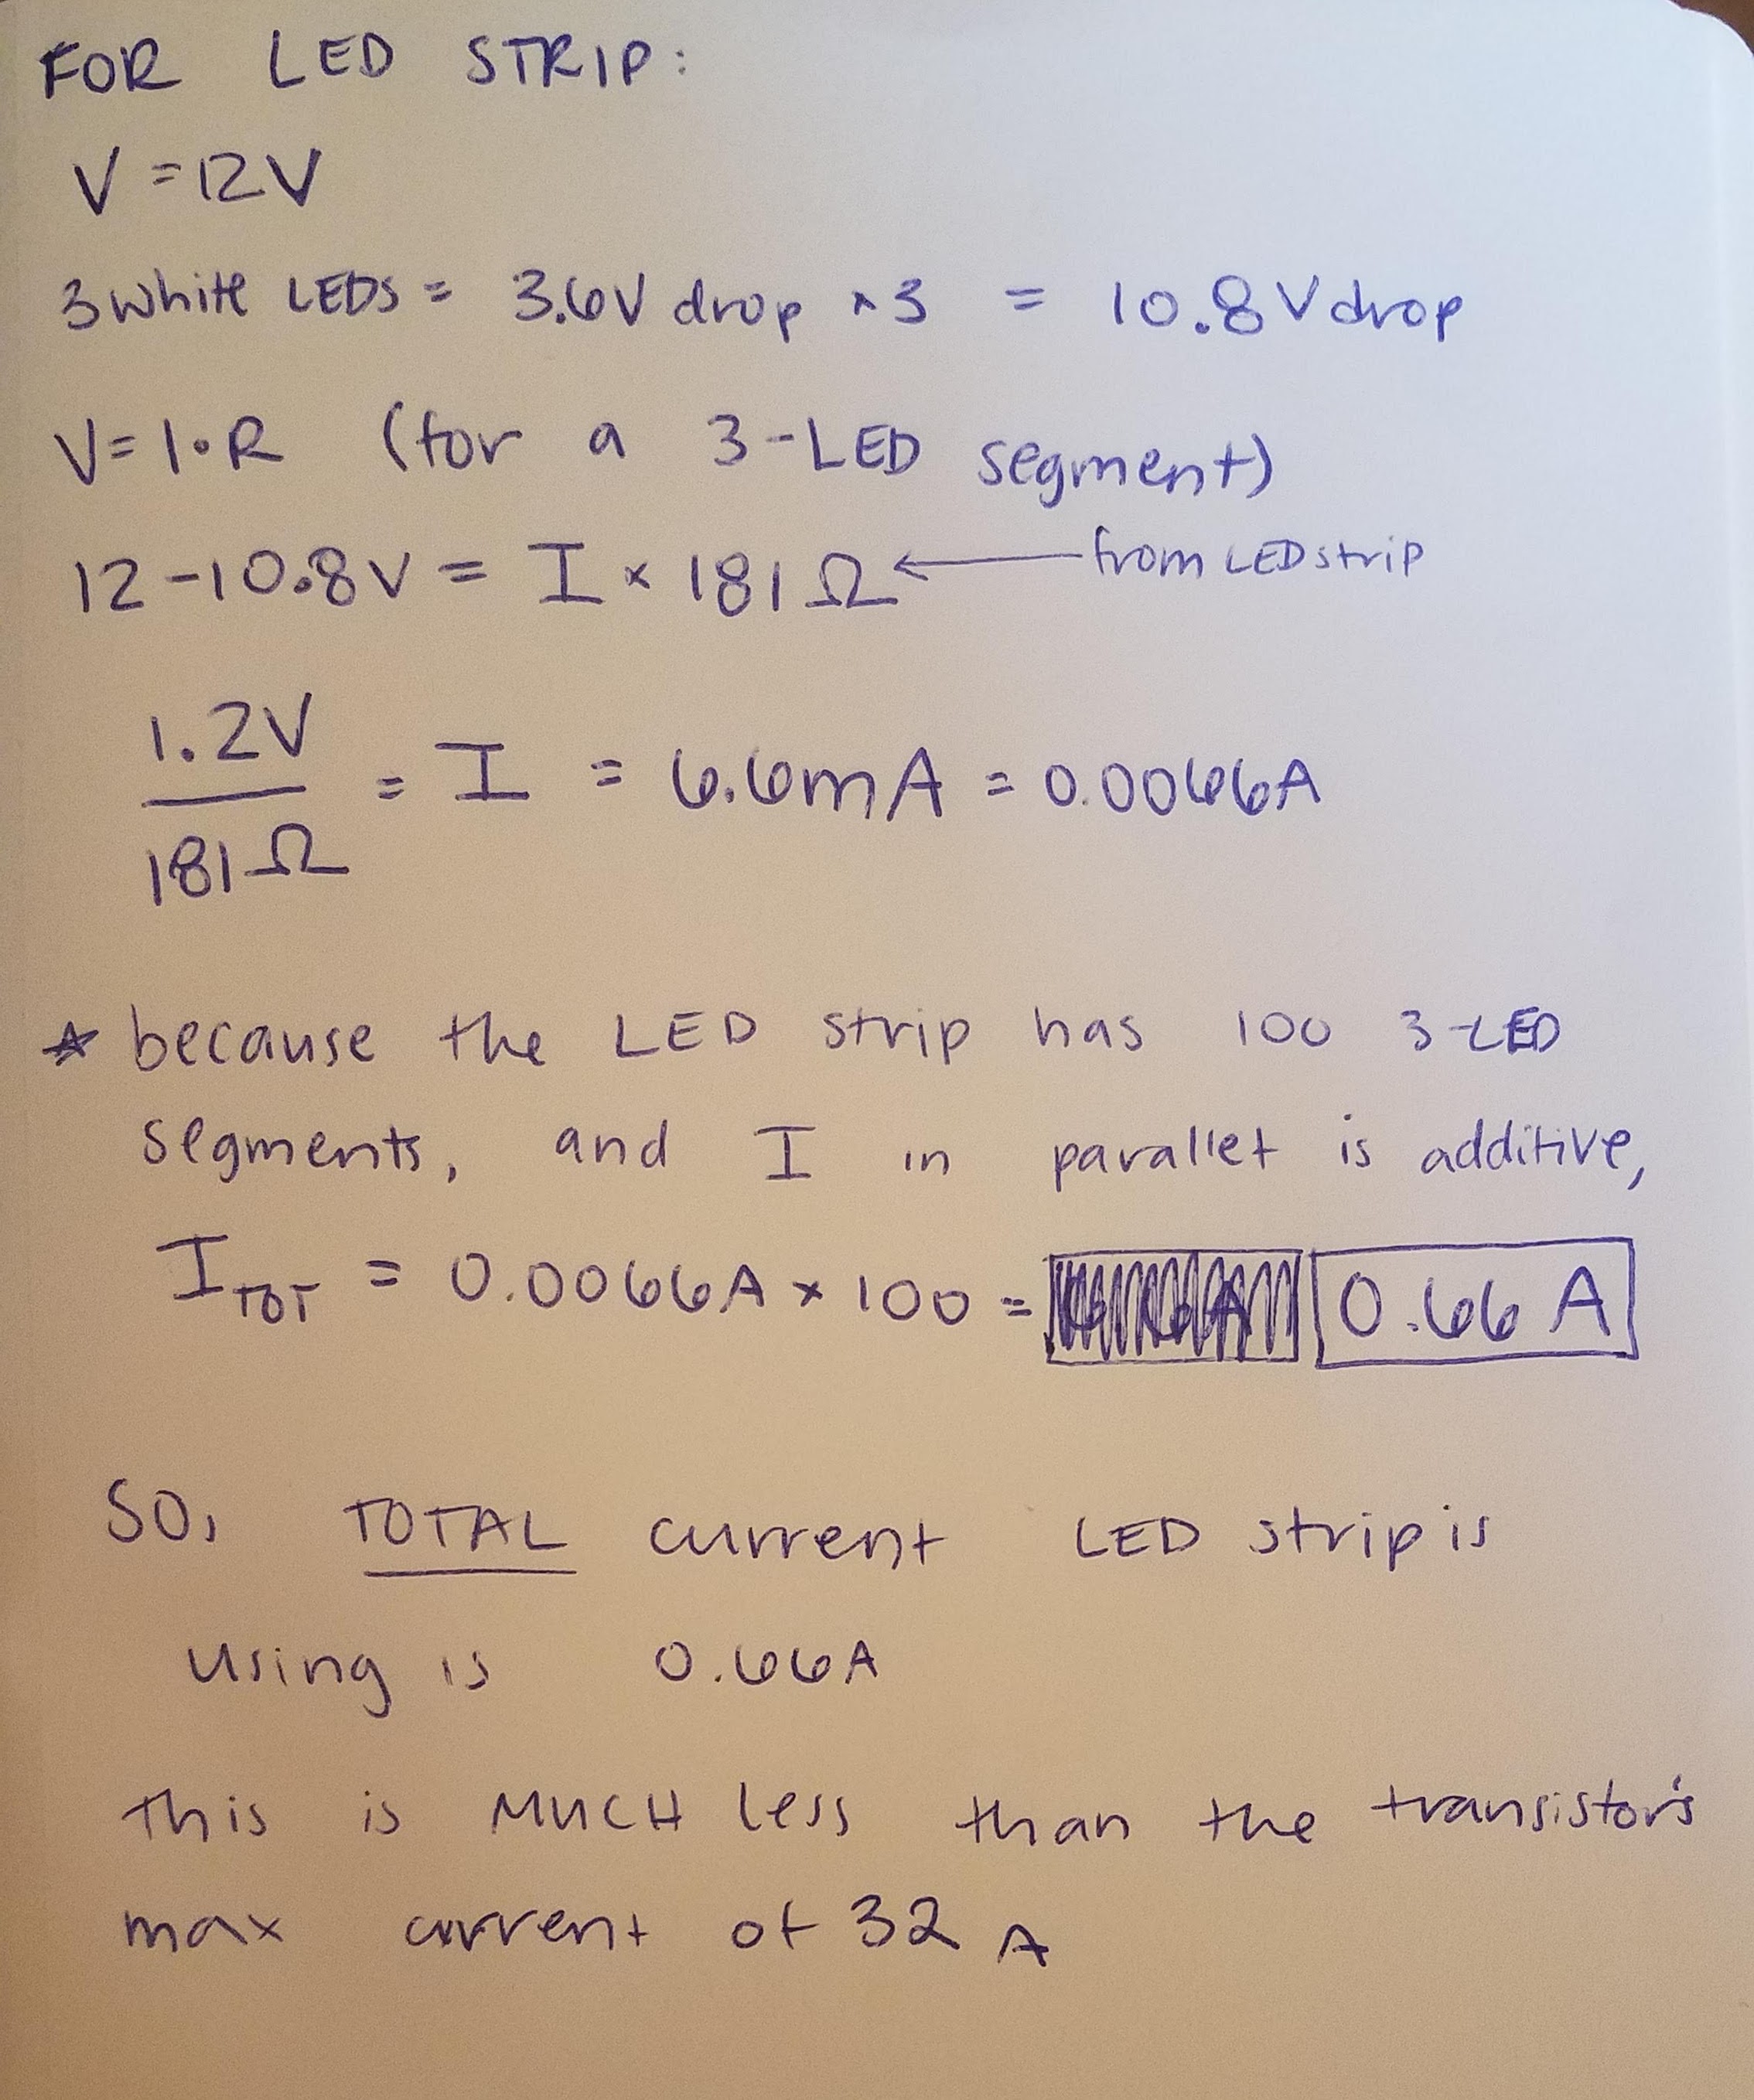 FOR LED STRIP:
V = 12V
3 white LEDS = 3.6V drop × 3 = 10.8V drop
V = I • R (for a 3-LED segment)
12 - 10.8V = I × 181Ω ← from LED strip
1.2V
/ 181Ω = I = 6.6mA = 0.0066A
* because the LED strip has 100 3-LED
segments, and I in parallel is additive,
I TOT = 0.0066A × 100 = 0.66 A
SO, TOTAL current LED strip is
using is 0.66A
This is MUCH less than the transistor's
max current of 32 A